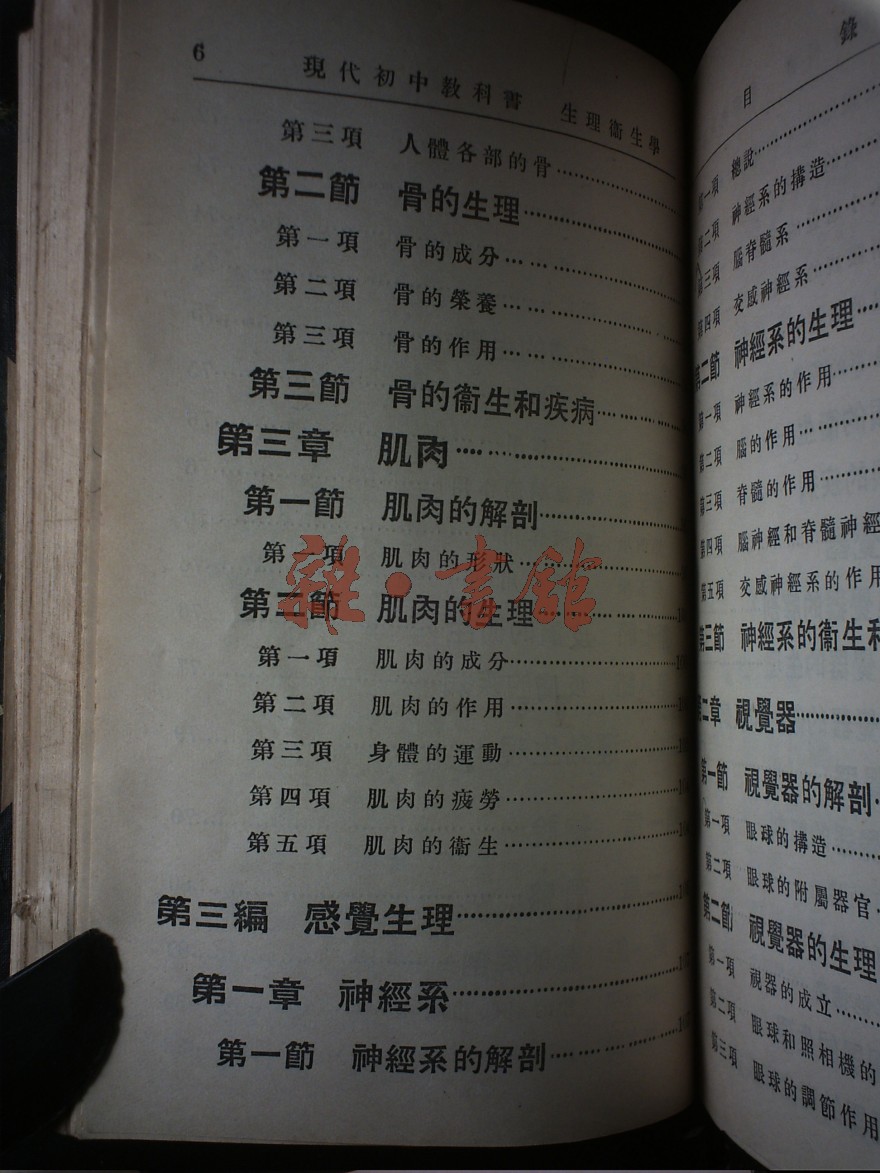 6 現代初中教科書 生理衞生學
第三項 人體各部的骨………………
第二節 骨的生理………………
第一項 骨的成分……………
第二項 骨的榮養………………
第三項 骨的作用……………
第三節 骨的衞生和疾病……………
第三章 肌肉………………
第一節 肌肉的解剖………………
第一項 肌肉的形狀………………
第二節 肌肉的生理………………
第一項 肌肉的成分………………
第二項 肌肉的作用………………
第三項 身體的運動………………
第四項 肌肉的疲勞………………
第五項 肌肉的衞生………………
第三編 感覺生理………………
第一章 神經系………………
第一節 神經系的解剖………………
雜·書館
目 錄
第一項 總說………………
第二項 神經系的構造………
第三項 腦脊髓系………
第四項 交感神經系………
第二節 神經系的生理……
第一項 神經系的作用……
第二項 腦的作用………
第三項 脊髓的作用………
第四項 腦神經和脊髓神經
第五項 交感神經系的作用
第三節 神經系的衞生和
第二章 視覺器………
第一節 視覺器的解剖…
第一項 眼球的構造………
第二項 眼球的附屬器官…
第二節 視覺器的生理
第一項 視器的成立………
第二項 眼球和照相機的
第三項 眼球的調節作用